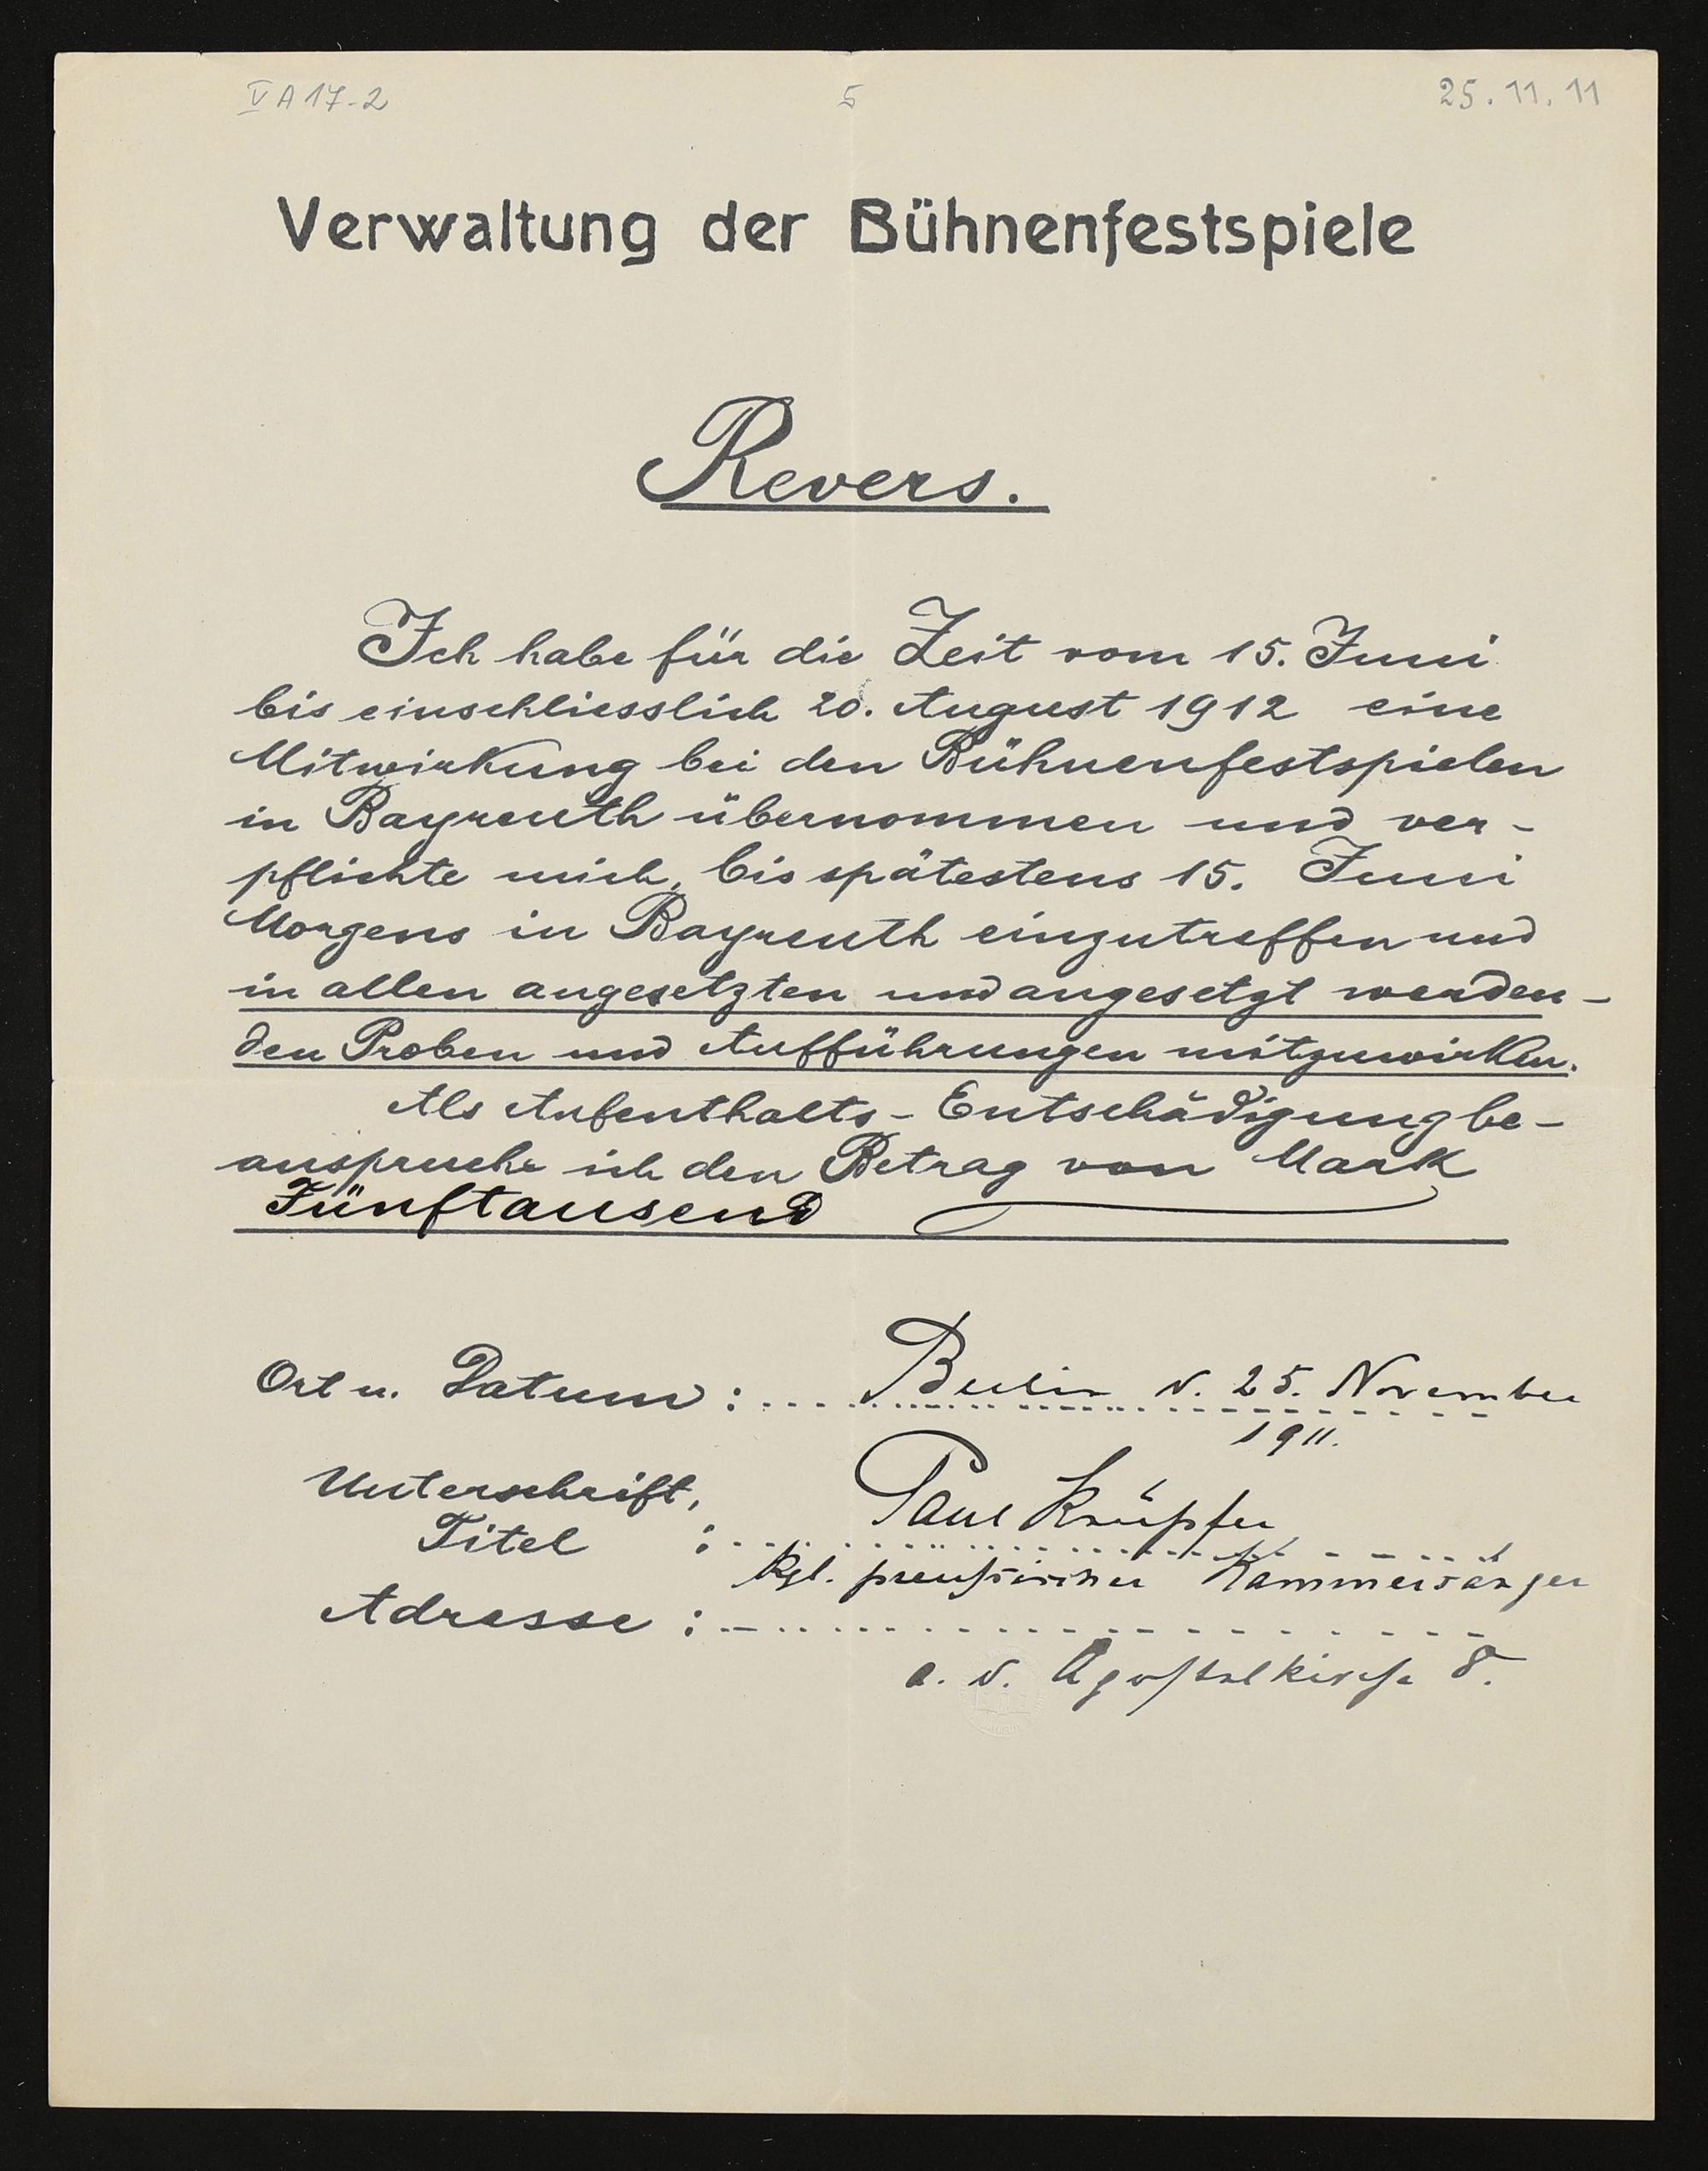 V A 17-2 5 25.11.11
Verwaltung der Bühnenfestspiele
Revers.
Ich habe für die Zeit vom 15. Juni
bis einschliesslich 20. August 1912 eine
Mitwirkung bei den Bühnenfestspielen
in Bayreuth übernommen und ver-
pflichte mich, bis spätestens 15. Juni
Morgens in Bayreuth einzutreffen und
in allen angesetzten und angesetzt werden-
den Proben und Aufführungen mitzuwirken.
Als Aufenthalts-Entschädigung be-
anspruche ich den Betrag von Mark
Fünftausend
Ort u. Datum: Berlin d. 25. November
1911.
Unterschrift, Paul Knüpfer
Titel :
Kgl. preußischer Kammersänger
Adresse :
a. d. Apostelkirche 8.